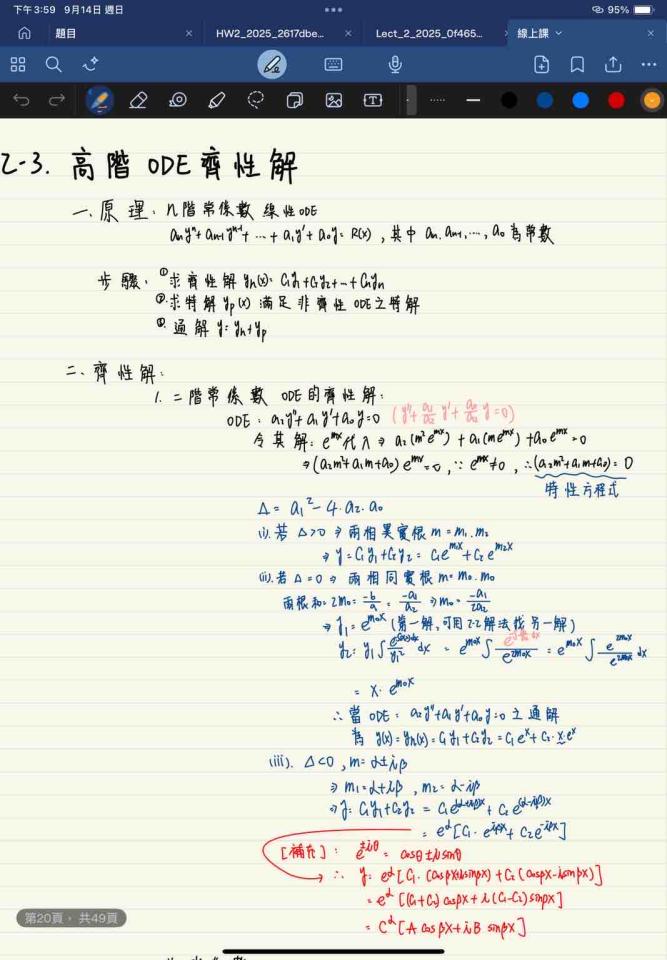 下午3:59 9月14日 週日
95%
題目
HW2_2025_2617dbe...
Lect_2_2025_0f465...
線上課
2-3. 高階 ODE 齊性解
一、原理: n階常係數線性ODE
aₙyⁿ + aₙ₋₁yⁿ⁻¹ + … + a₁y' + a₀y = R(x), 其中 aₙ, aₙ₋₁, …, a₀ 為常數
步驟: ①求齊性解 yₕ(x) = C₁y₁+C₂y₂+…+Cₙyₙ
②求特解 yₚ(x) 滿足非齊性 ODE 之特解
③通解 y = yₕ+yₚ
二、齊性解:
1. 二階常係數 ODE 的齊性解:
ODE: a₂y''+a₁y'+a₀y=0 (y''+a₁/a₂ y'+a₀/a₂ y=0)
令其解: e^{mx}代入 ⇒ a₂(m²e^{mx}) + a₁(me^{mx}) + a₀e^{mx} = 0
⇒ (a₂m²+a₁m+a₀)e^{mx} = 0, ∵ e^{mx}≠0, ∴(a₂m²+a₁m+a₀) = 0
特性方程式
Δ = a₁² - 4·a₂·a₀
(i). 若 Δ>0 ⇒ 兩相異實根 m = m₁, m₂
⇒ y = C₁y₁+C₂y₂ = C₁e^{m₁x} + C₂e^{m₂x}
(ii). 若 Δ=0 ⇒ 兩相同實根 m = m₀, m₀
兩根和: 2m₀ = -b/a = -a₁/a₂ ⇒ m₀ = -a₁/2a₂
⇒ y₁ = e^{m₀x} (第一解, 可用 2-2 解法找另一解)
y₂ = y₁∫ /y₁² dx = e^{m₀x}∫ /e^{2m₀x} = e^{m₀x}∫ e^{2m₀x}/e^{2m₀x} dx
= x·e^{m₀x}
∴ 當 ODE: a₂y''+a₁y'+a₀y=0 之通解
為 y(x) = yₕ(x) = C₁y₁+C₂y₂ = C₁e^x + C₂·x·e^x
(iii). Δ<0, m = α±iβ
⇒ m₁ = α+iβ, m₂ = α-iβ
⇒ y = C₁y₁+C₂y₂ = C₁e^{(α+iβ)x} + C₂e^{(α-iβ)x}
= e^α[C₁·e^{iβx} + C₂e^{-iβx}]
[補充]: e^{±iθ} = cosθ ± isinθ
∴ y = e^α[C₁·(cosβx+isinβx) + C₂(cosβx-isinβx)]
= e^α[(C₁+C₂)cosβx + i(C₁-C₂)sinβx]
= C^α[A cosβx + iB sinβx]
第20頁, 共49頁